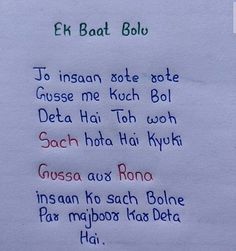 Ek Baat Bolu
Jo insaan rote rote
Gusse me Kuch Bol
Deta Hai Toh woh
Sach hota Hai Kyuki
Gussa aur Rona
insaan Ko sach Bolne
Par majboor Kar Deta
Hai.